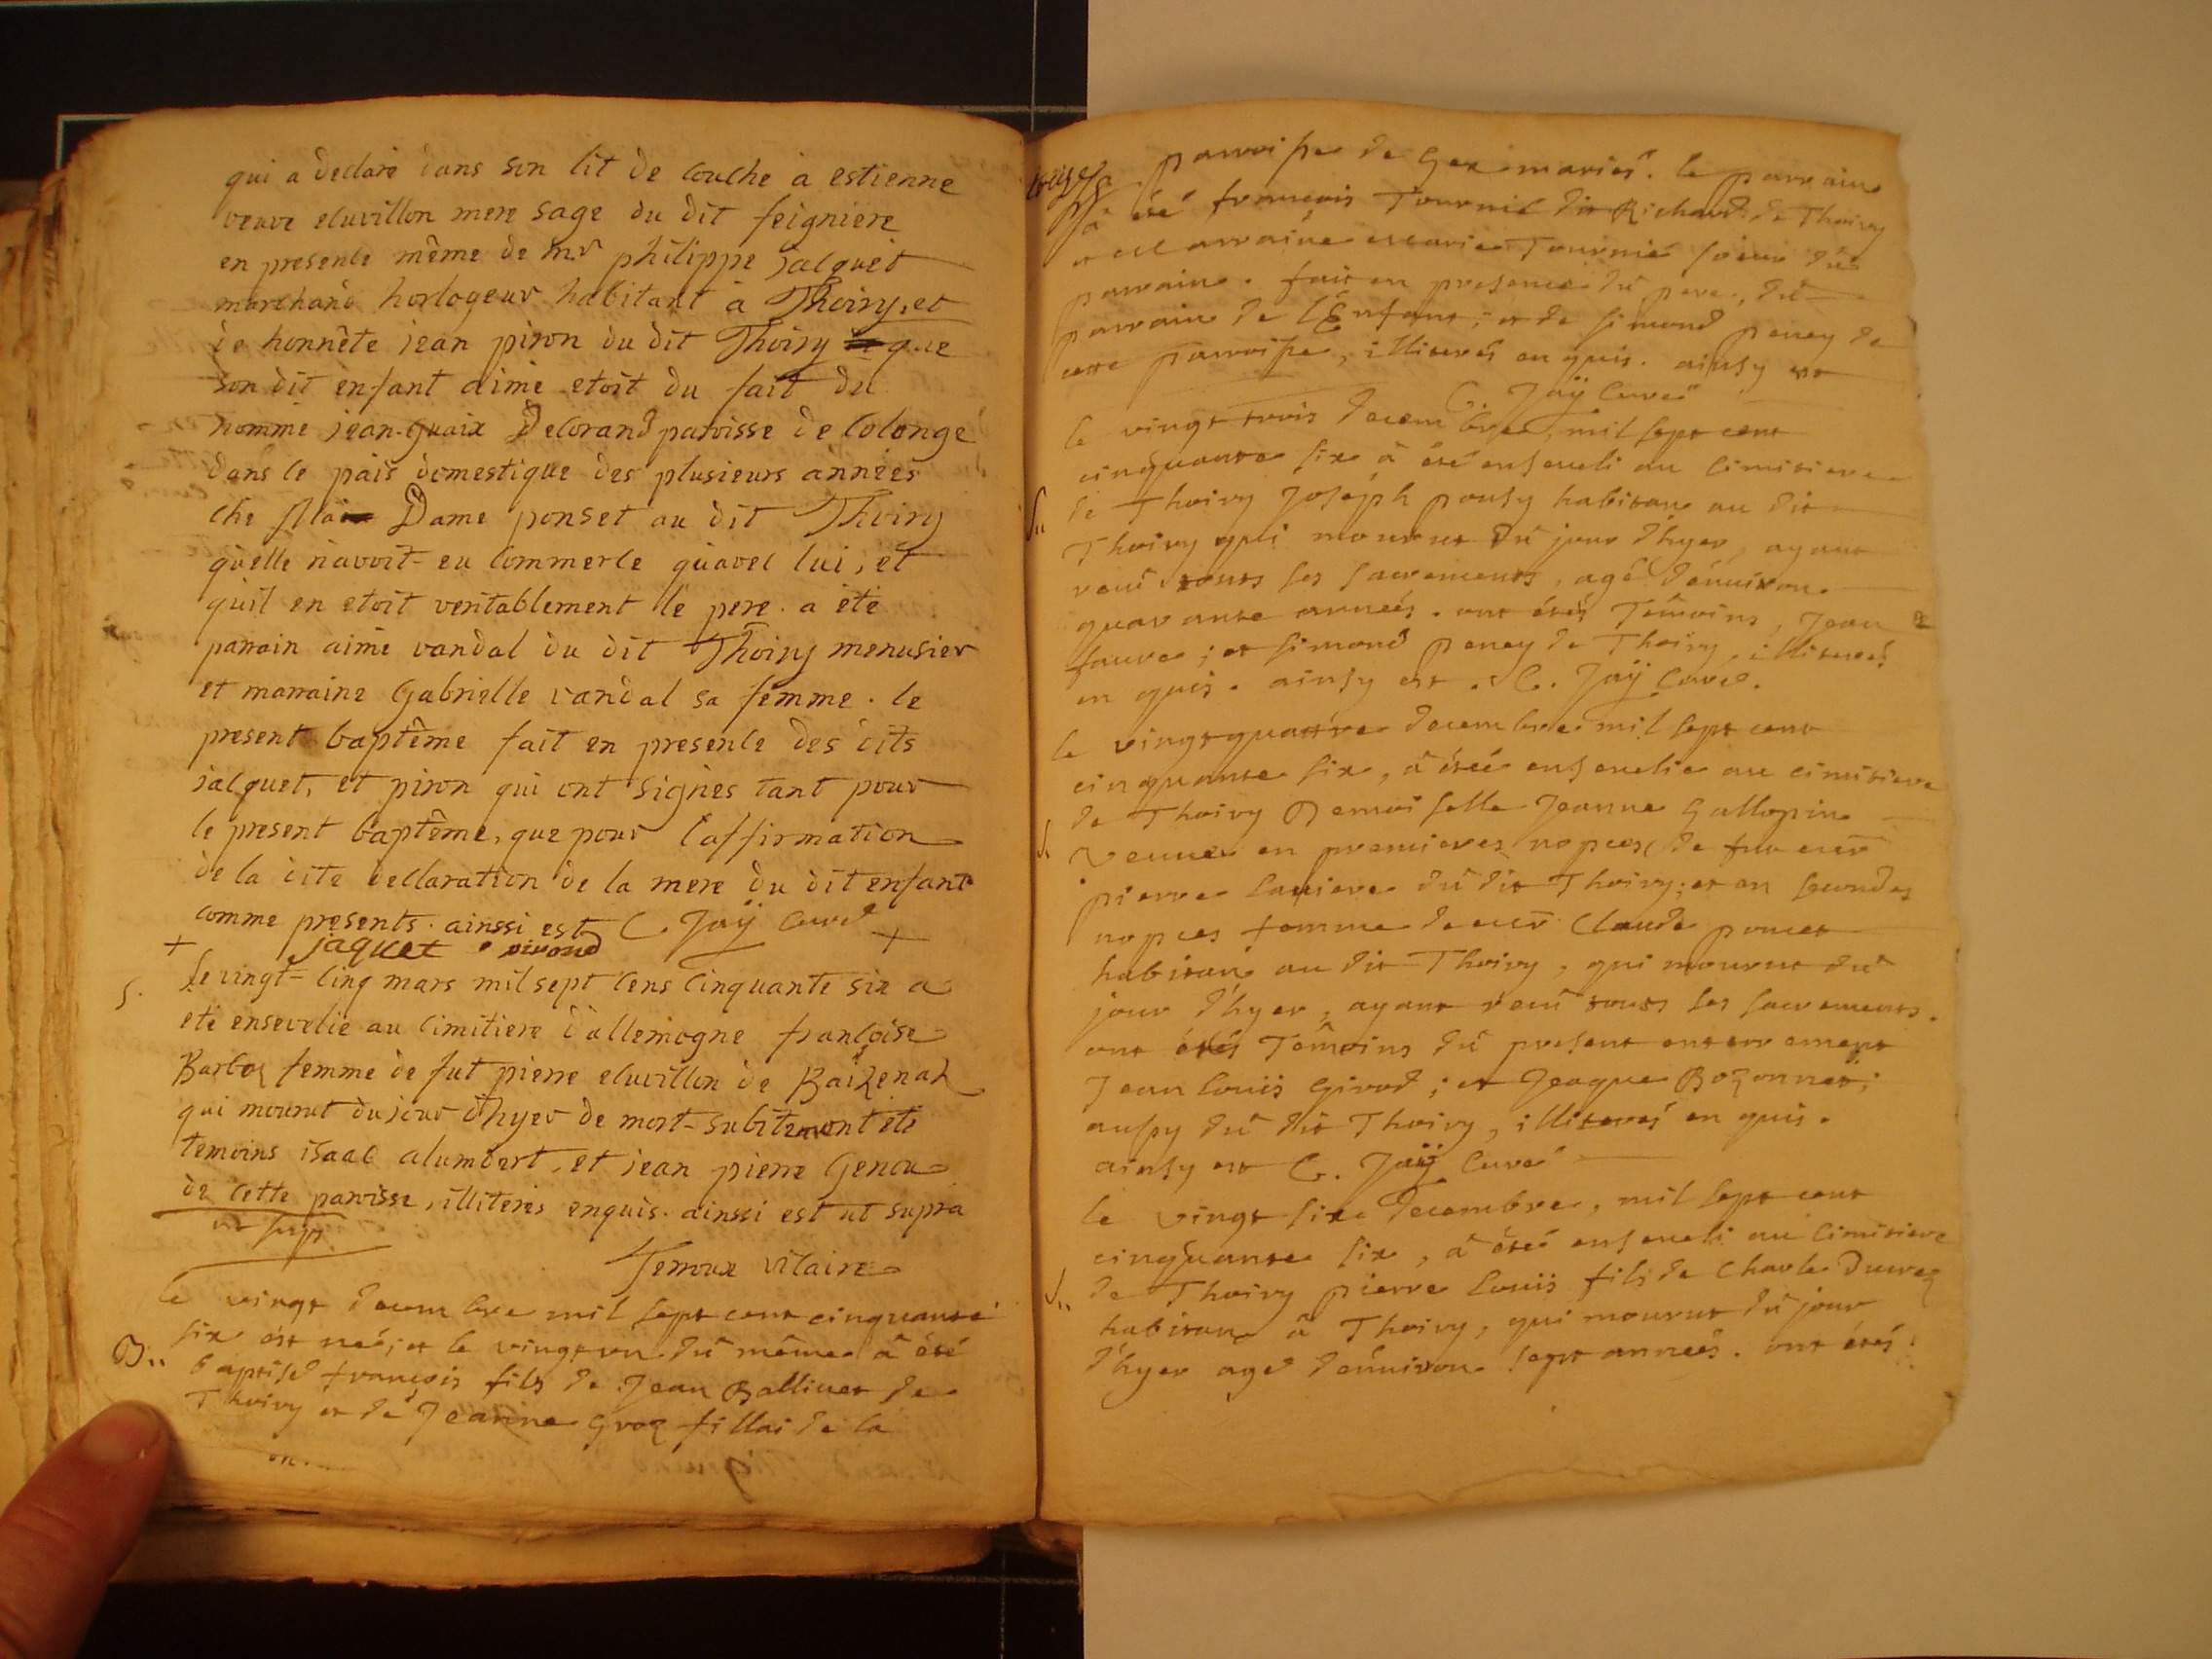 qui a declaré dans son lit de couche à estienne
veuve eluvillon mere sage du dit feigniere
en presence même de mr philippe jalquet
marchand horlogeur habitant à Thoiry, et
de honnête jean piron du dit Thoiry que
son dit enfant aimé etoit du fait du
nommé jean-guaix Delorand paroisse de Colonge
dans le païs domestique des plusieurs années
che Dame ponset au dit Thoiry
qu'elle n'avoit eu commerce qu'avec lui, et
qu'il en etoit veritablement le pere. a été
parrain aimé vandal du dit Thoiry menusier
et marraine Gabrielle vandal sa femme. le
present baptême fait en presence des dits
jalquet, et piron qui ont signés tant pour
le present baptême, que pour l'affirmation
de la dite declaration de la mere du dit enfant
comme presents. ainssi est C. Jaÿ Curé
+ jaquet pirond +
S. Le vingt-cinq mars mil sept cens cinquante six a
eté ensevelie au cimitiere d'allemogne françoise
Barboz femme de fut pierre eluvillon de Baizenaz
qui mourut du jour d'hyer de mort-subite ont été
temoins isaac alumbert, et jean pierre Genou
de cette paroisse, illiterés enquis. ainssi est ut supra
ut supr
Terroux vicaire
le vingt decembre mil sept cent cinquante
six est neé; et le vingt un du même à été
B,, baptisé françois fils de Jean Ballivet de
Thoiry et de Jeanne Groz fillai de la
parroisse de Gex mariés. le parrain
à été françois Tournié dit Richard de Thoiry
et marraine marie Tournié soeur du
parrain. fait en presence du pere, du
parrain de l'Enfant; et de simond peney de
cette parroisse, illiterés enquis. ainsy est
C. Jaÿ Curé
le vingt trois decembre, mil sept cent
cinquante six à été enseveli au cimitiere
S,, de Thoiry Joséph pousy habitant au dit
Thoiry mourut du jour d'hyer, ayant
receû touts les sacrements, agé d'énviron
quarante anneés. ont étés Témoins, Jean
favre; et simond peney de Thoiry, illiterés
enquis. ainsy est. C. Jaÿ Curé.
le vingtquattre decembre mil sept cent
cinquante six, à éteé ensevelie au cimitiere
de Thoiry Demoiselle Jeanne Gallopin
S. Veuve en premieres nopces de fut
pierre Laviere du dit Thoiry; et en secondes
nopces femme de Claude poncet
habitant au dit Thoiry, qui mourut du
jour d'hyer, ayant receû touts les sacrements.
ont étés Témoins du present enterrement
Jean Louis Girod; et Jeaque Bozonnet;
aussy du dit Thoiry, illiterés enquis.
ainsy est C. Jaÿ Curé
le vingt six decembre, mil sept cent
cinquante six, à éteé enseveli au cimitiere
S,, de Thoiry pierre Louis fils de Charle Ducrez
habitant à Thoiry, qui mourut du jour
d'hyer agé d'énviron sept anneés. ont étés